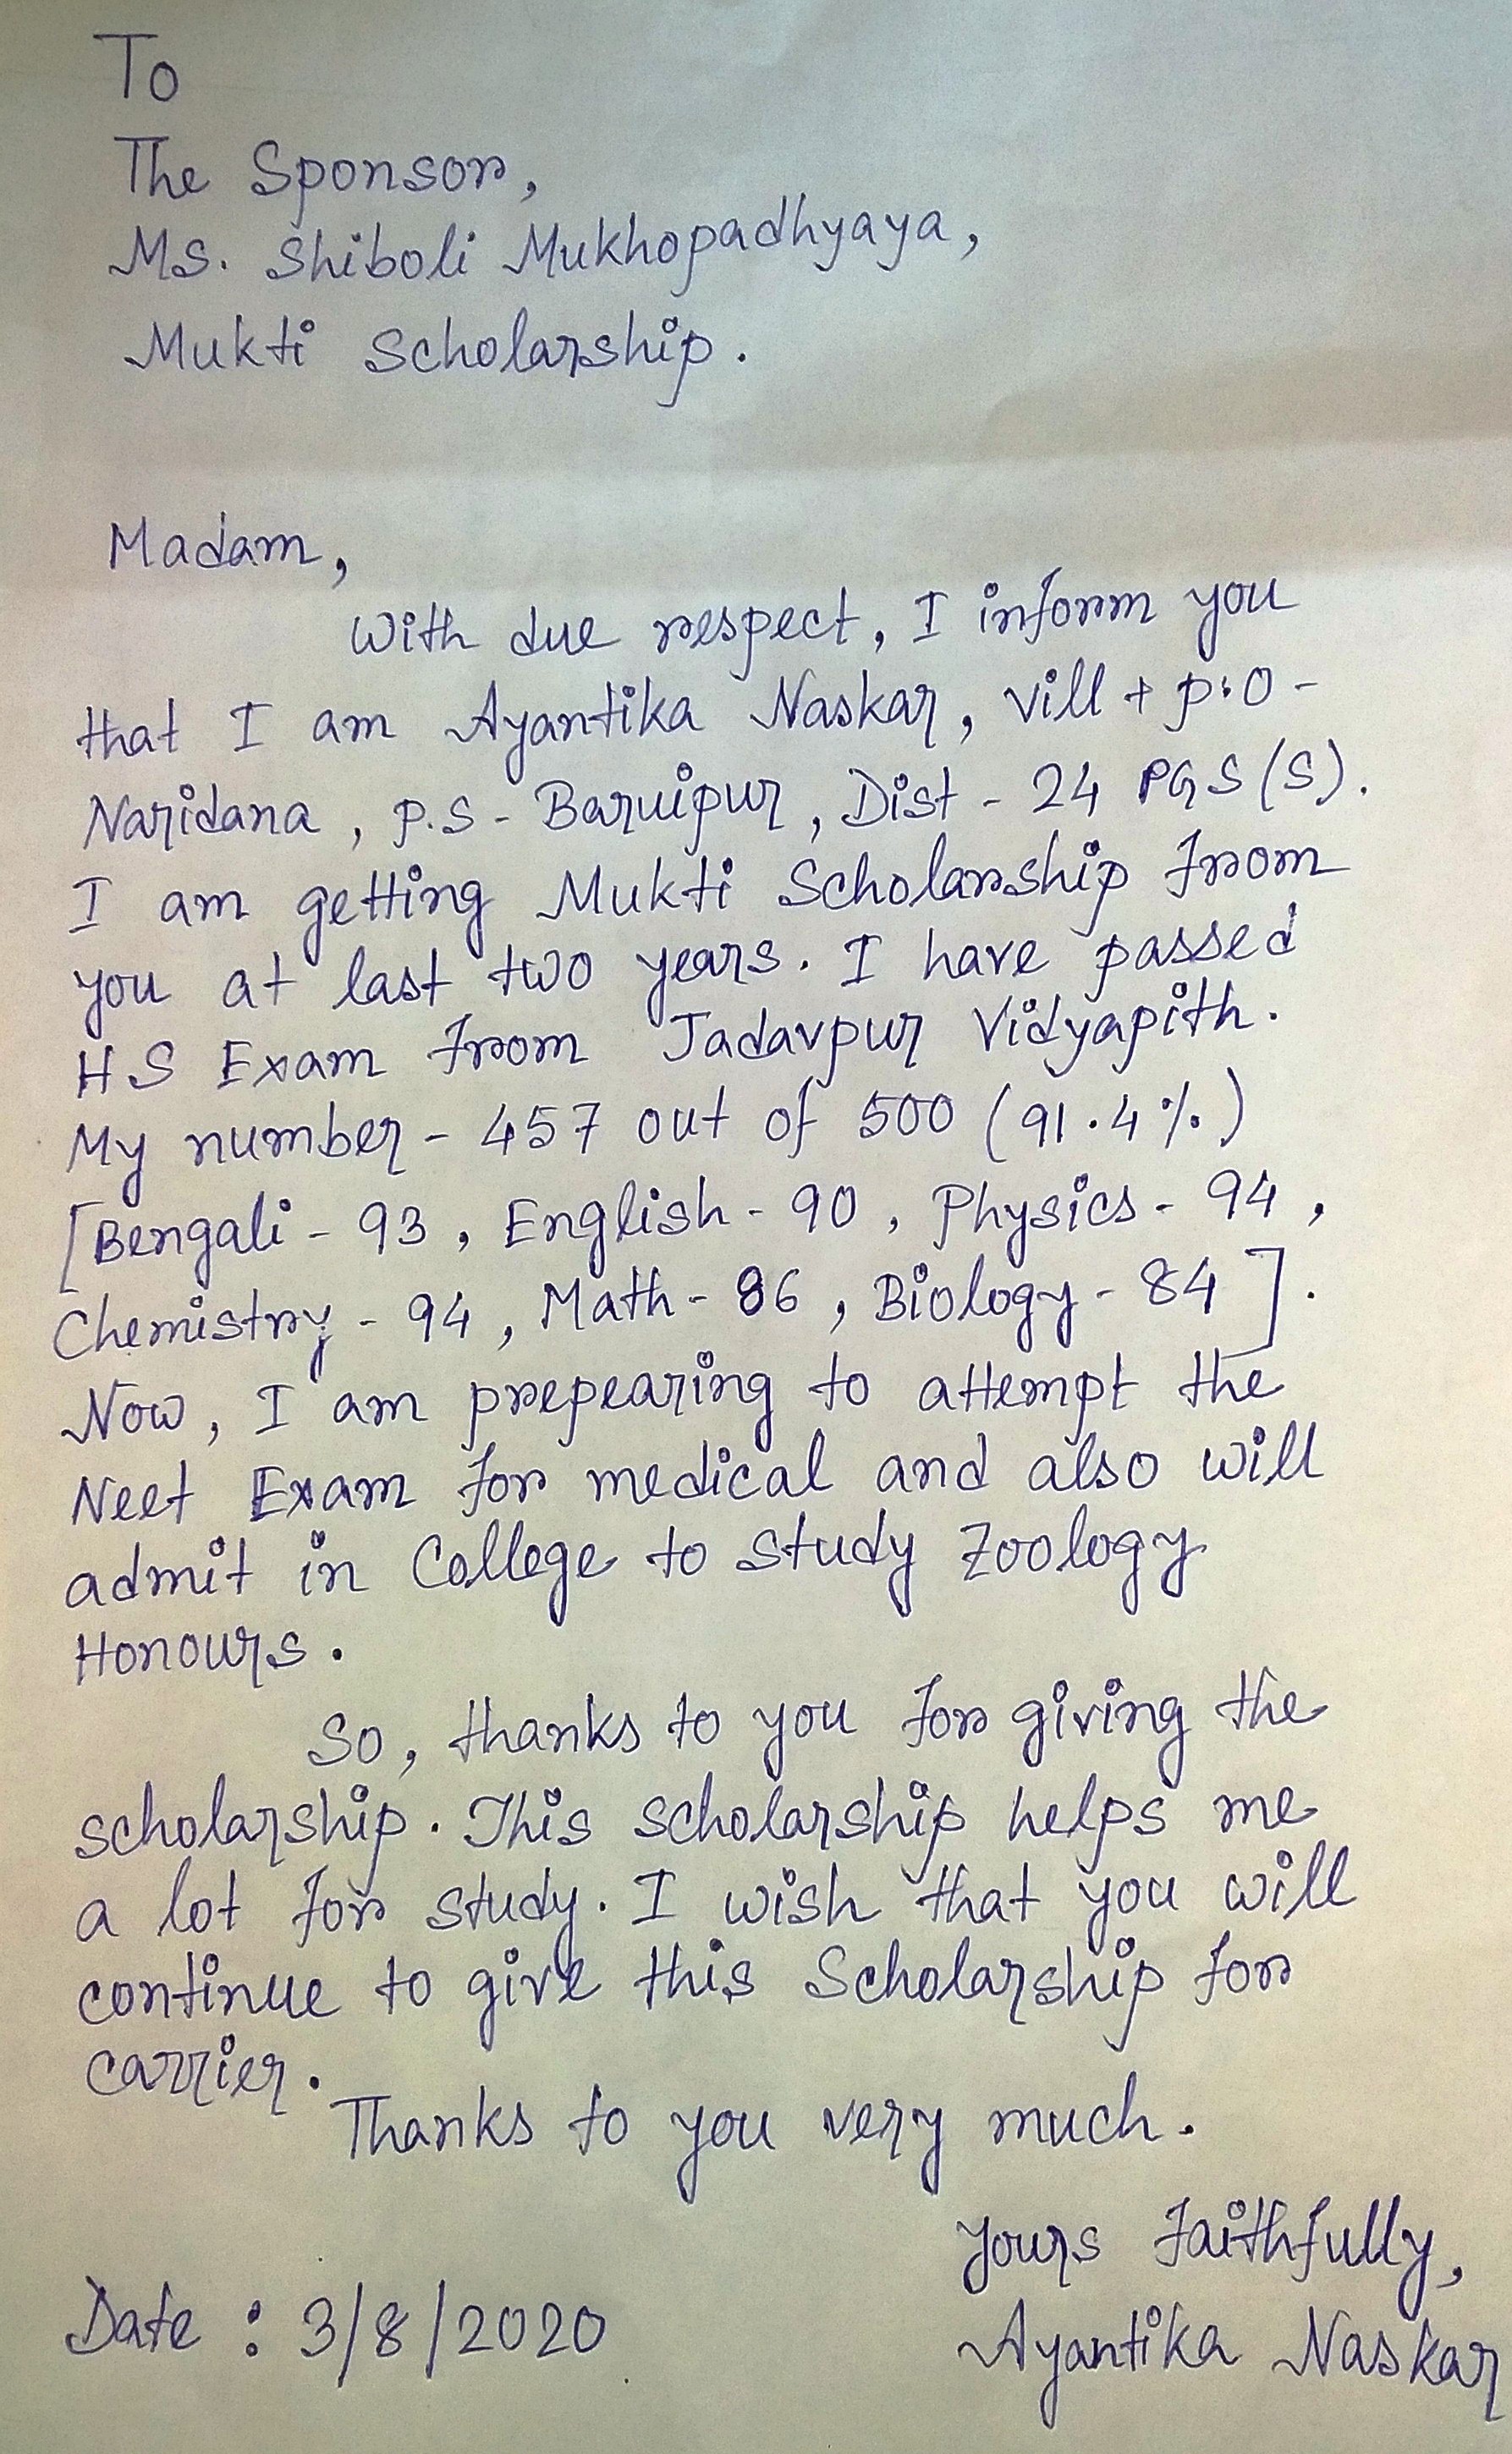 To
The Sponsor,
Ms. Shiboli Mukhopadhyaya,
Mukti Scholarship.
Madam,
With due respect, I inform you
that I am Ayantika Naskar, Vill + P.O -
Naridana, P.S - Baruipur, Dist - 24 PGS (S).
I am getting Mukti Scholarship from
you at last two years. I have passed
HS Exam from Jadavpur Vidyapith.
My number - 457 out of 500 (91.4%)
[Bengali - 93, English - 90, Physics - 94,
Chemistry - 94, Math - 86, Biology - 84].
Now, I am prepearing to attempt the
Neet Exam for medical and also will
admit in College to study Zoology
Honours.
So, thanks to you for giving the
scholarship. This scholarship helps me
a lot for study. I wish that you will
continue to give this Scholarship for
carrier.
Thanks to you very much.
Yours faithfully,
Date : 3/8/2020
Ayantika Naskar